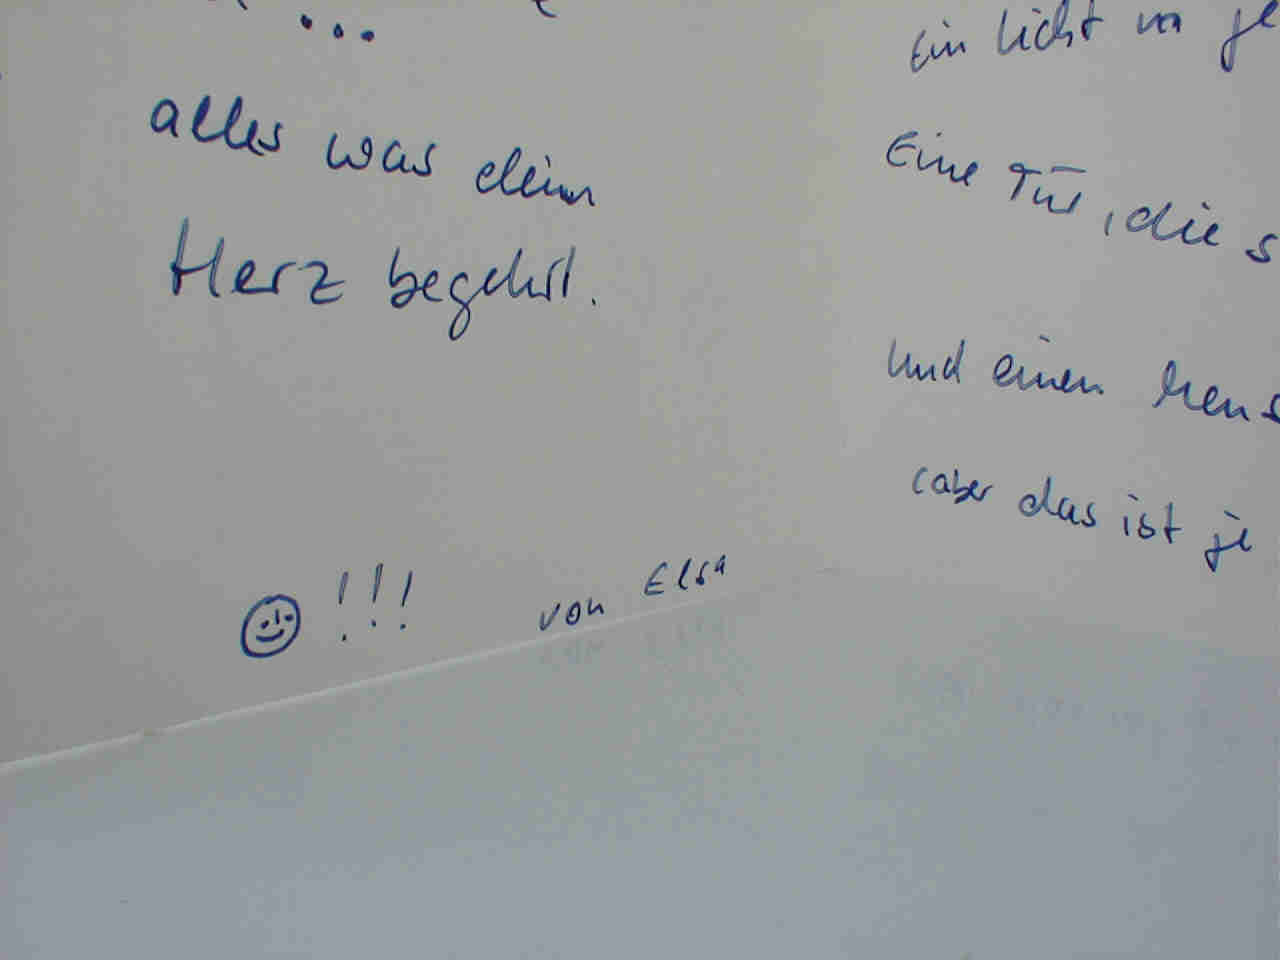 ...
alles was dein
Herz begehrt.
!!! von Elsa
Ein Licht von je
Eine Tür, die s
Und einen Mens
(aber das ist je